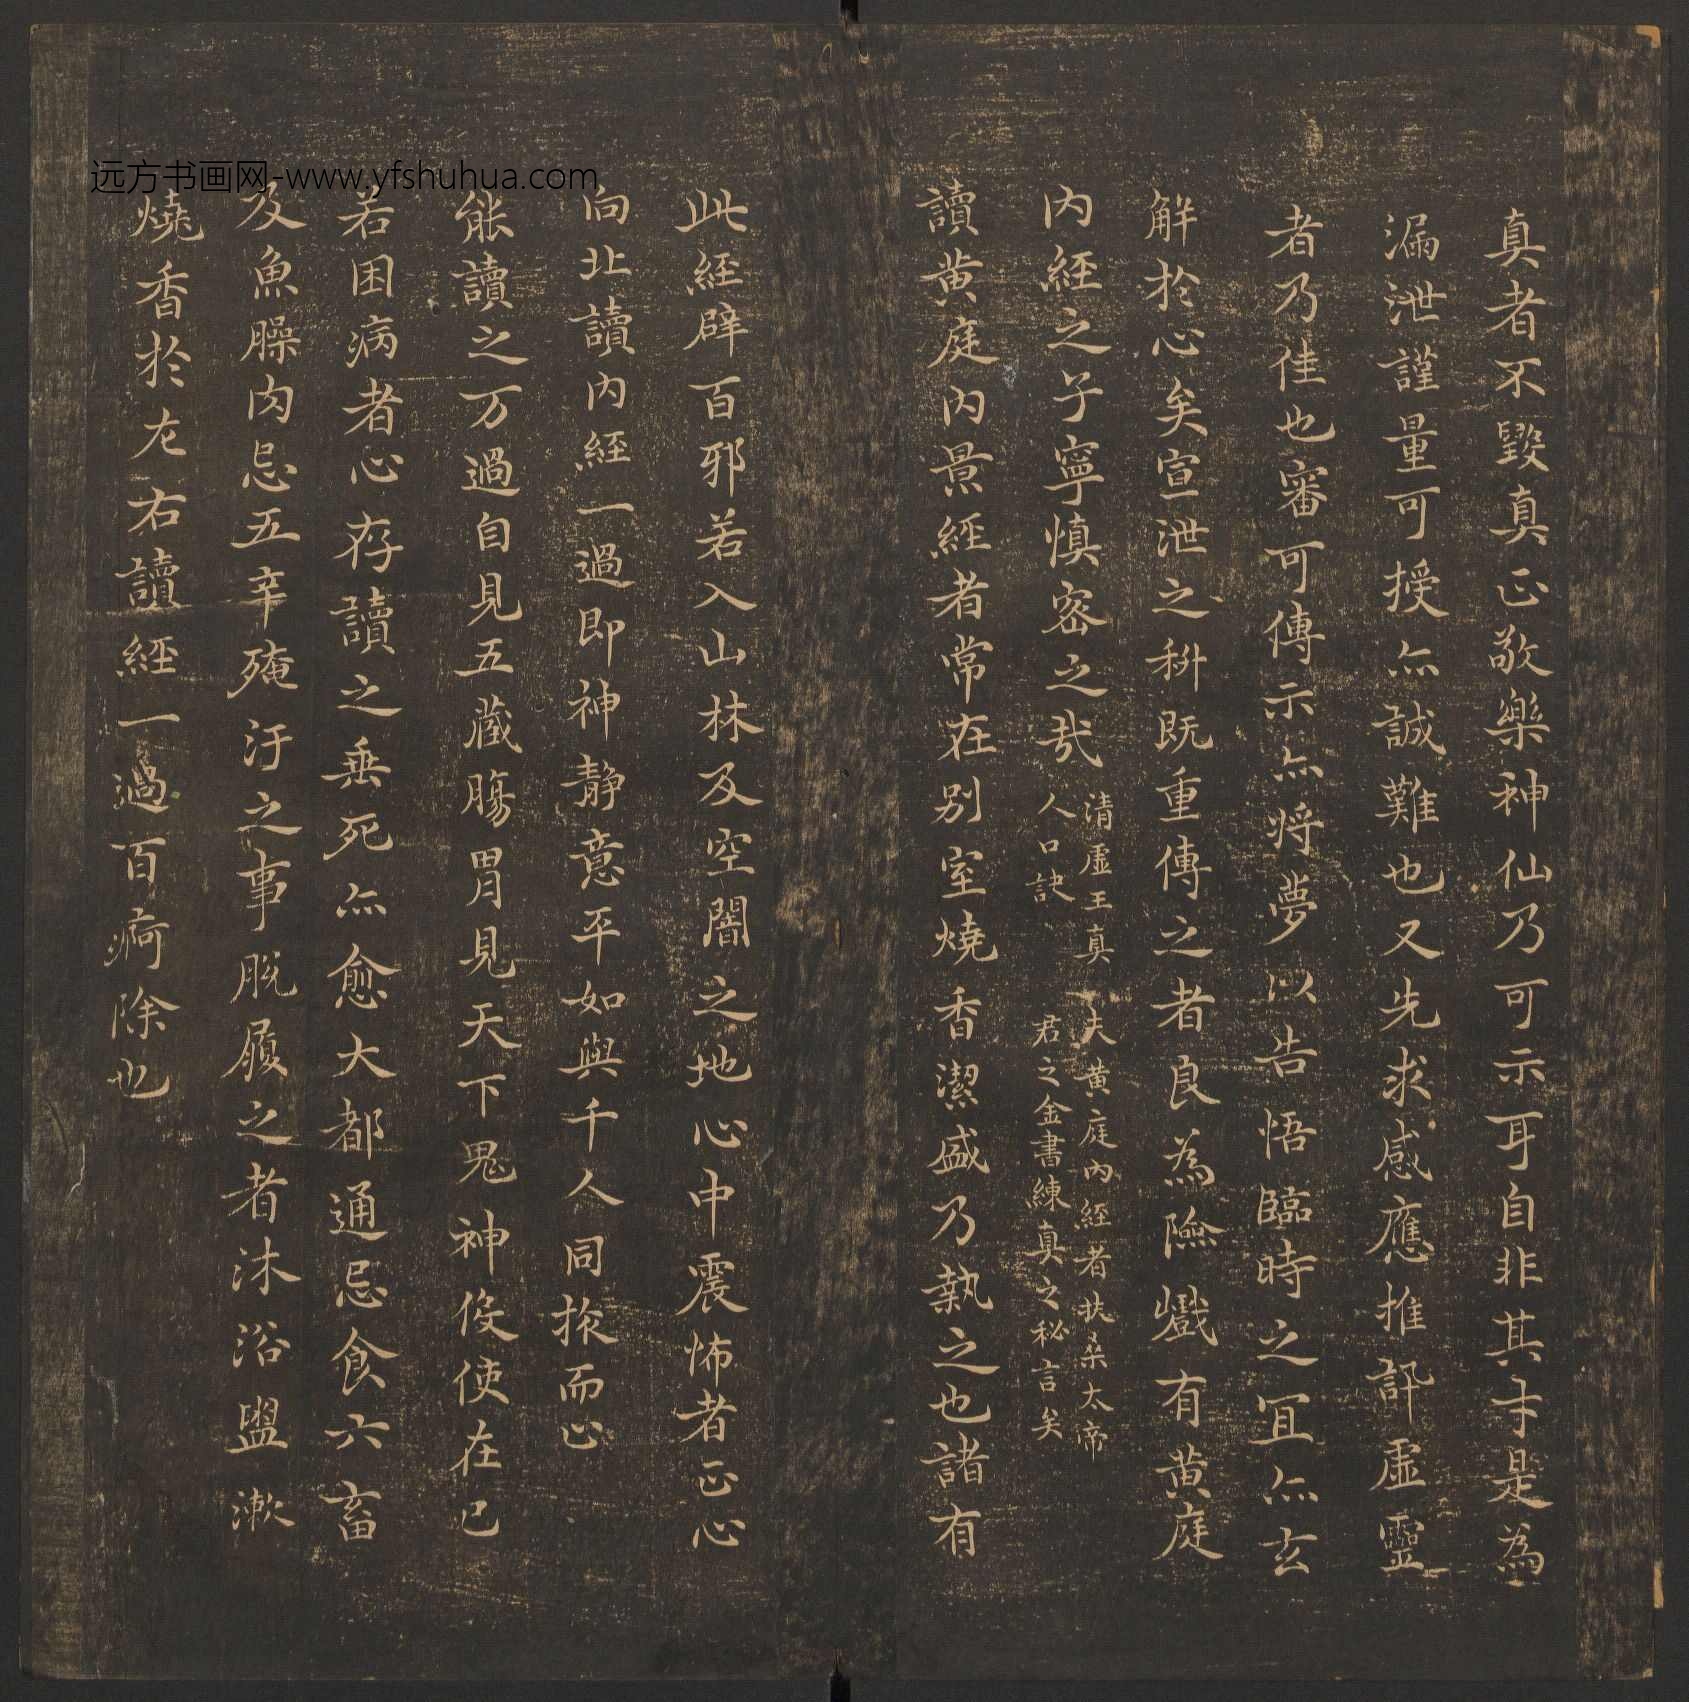 远方书画网-www.yfshuhua.com
真者不毀真正敬樂神仙乃可示耳自非其才是為
漏泄謹量可授亦誠難也又先求感應推訊虛靈
者乃佳也審可傳示亦將夢以告悟臨時之宜亦玄
解於心矣宣泄之科既重傳之者良為險巇有黄庭
内經之子寧慎密之哉
清虛王真
人口訣
夫黄庭内經者扶桑太帝
君之金書練真之秘言矣
讀黄庭内景經者常在别室燒香潔盛乃執之也諸有
此經辟百邪若入山林及空闇之地心中震怖者正心
向北讀内經一過即神静意平如與千人同旅而止
能讀之万過自見五藏腸胃見天下鬼神役使在己
若困病者心存讀之垂死亦愈大都通忌食六畜
及魚臊肉忌五辛殗汙之事脱履之者沐浴盥漱
燒香於左右讀經一過百痾除也